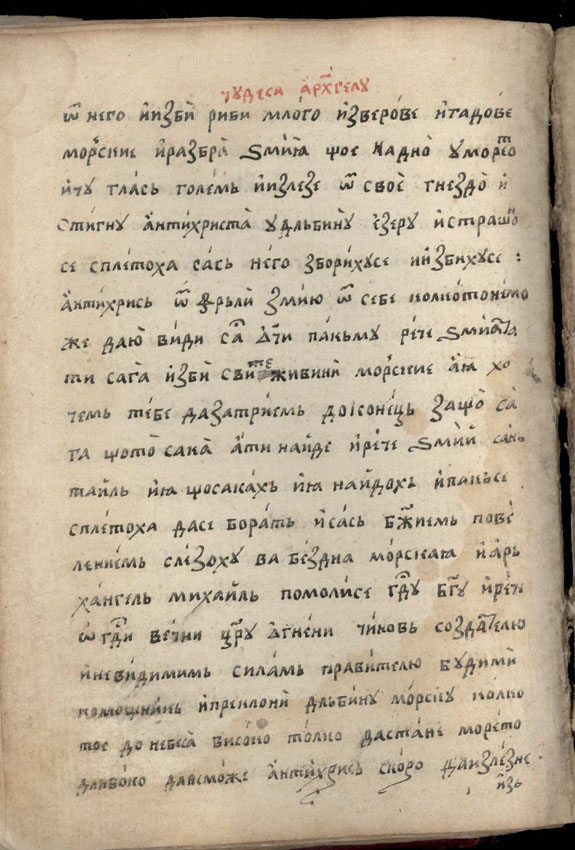 чудеса архг҃елу
ѿ него и҆ и҆зби҆ риби мло́го и҆зверо́ве и҆ гадо́ве
мо́рские и҆ разбра̀ ѕми́ꙗ щое на дно̀ у море҆то
и҆ чу гла́сь голе́мь и҆ и҆злезе ѿ свое҆ гнездо̀ и҆
стигну а҆нти́христа у дльбину е҆зеру и҆ страшно
се сплетоха сась не́го зборихусе и҆ и҆збихусе :
а҆нти́хрись ѿ фрьли ѕмию ѿ себе колкото немо
же да ю ви́ди са̀ ѡ҆чи па́кьму ре́че ѕмиꙗта
ти сага и҆збѝ сви́те живини мо́рские а҆ ꙗ҆ хо
чемь те́бе да затриемь до конець защо̀ са̀
га що то̀ сака̀ а҆ ти на́йде и҆ ре́че ѕми́й сань
таи́ль и҆ ꙗ҆ що сака́хь и҆ ꙗ҆ найдохь и҆ па́кь се
сплетоха да се бора́ть и҆ сась бж҃ие́мь пове́
ление́мь сле́зоху ва бе́здна мо́рскаꙗ и҆ а҆рь
ха́нгель миха́йль помоли́се гд҃у бг҃у и҆ ре́че
ѡ҆ гд҃и ве́чни цр҃у ѡ҆гнени чи́новь созда́телю
и҆ неви́димимь си́ламь правителю буди мѝ
помощникь и҆ преклонѝ дльбину мо́рску ко́лко
тое до небеса̀ високо то́лко да стане море́то
дльбоко да не може а҆нти́хрись скоро да и҆зле́зне
и҆зь